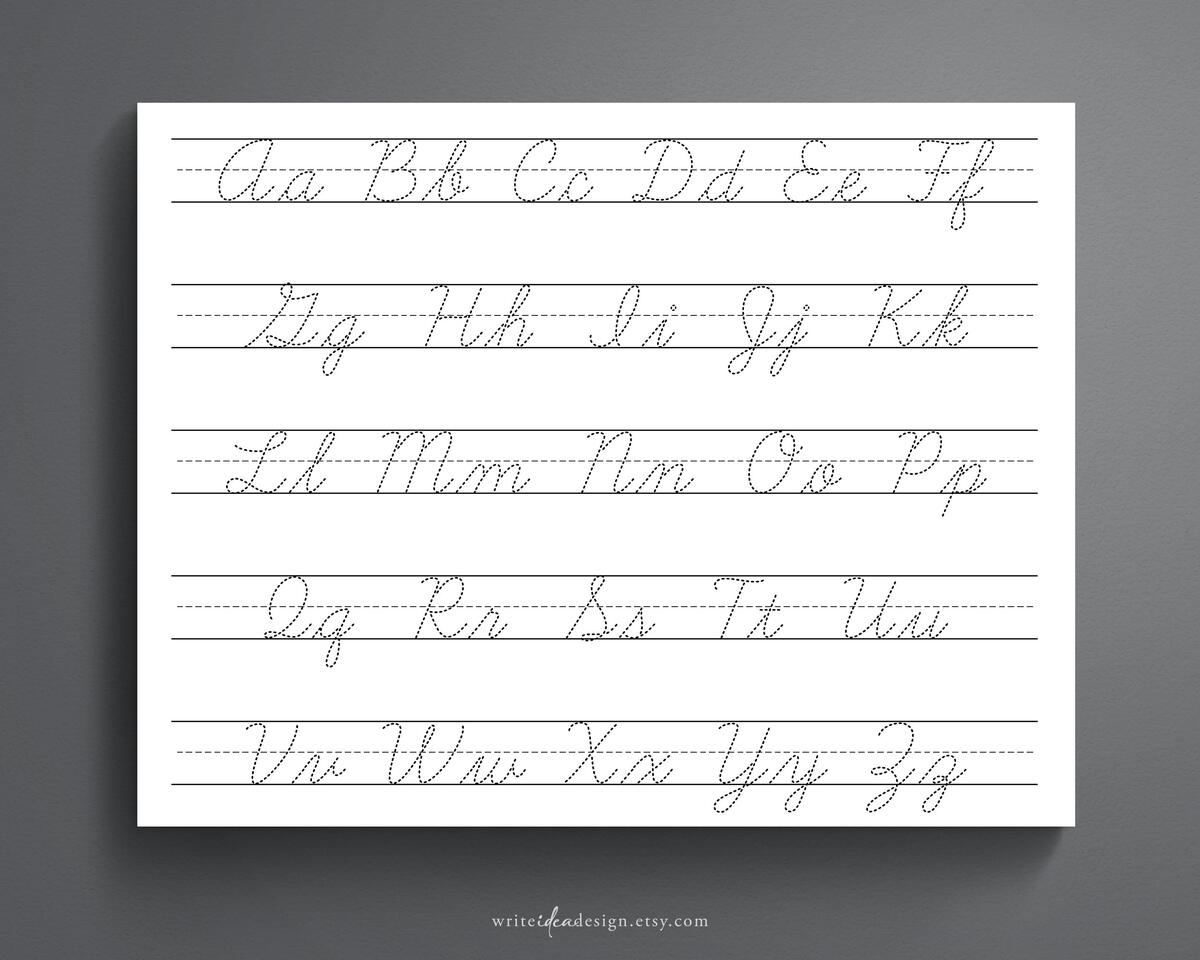 Aa Bb Cc Dd Ee Ff
Gg Hh Ii Jj Kk
Ll Mm Nn Oo Pp
Qq Rr Ss Tt Uu
Vv Ww Xx Yy Zz
writeideadesign.etsy.com